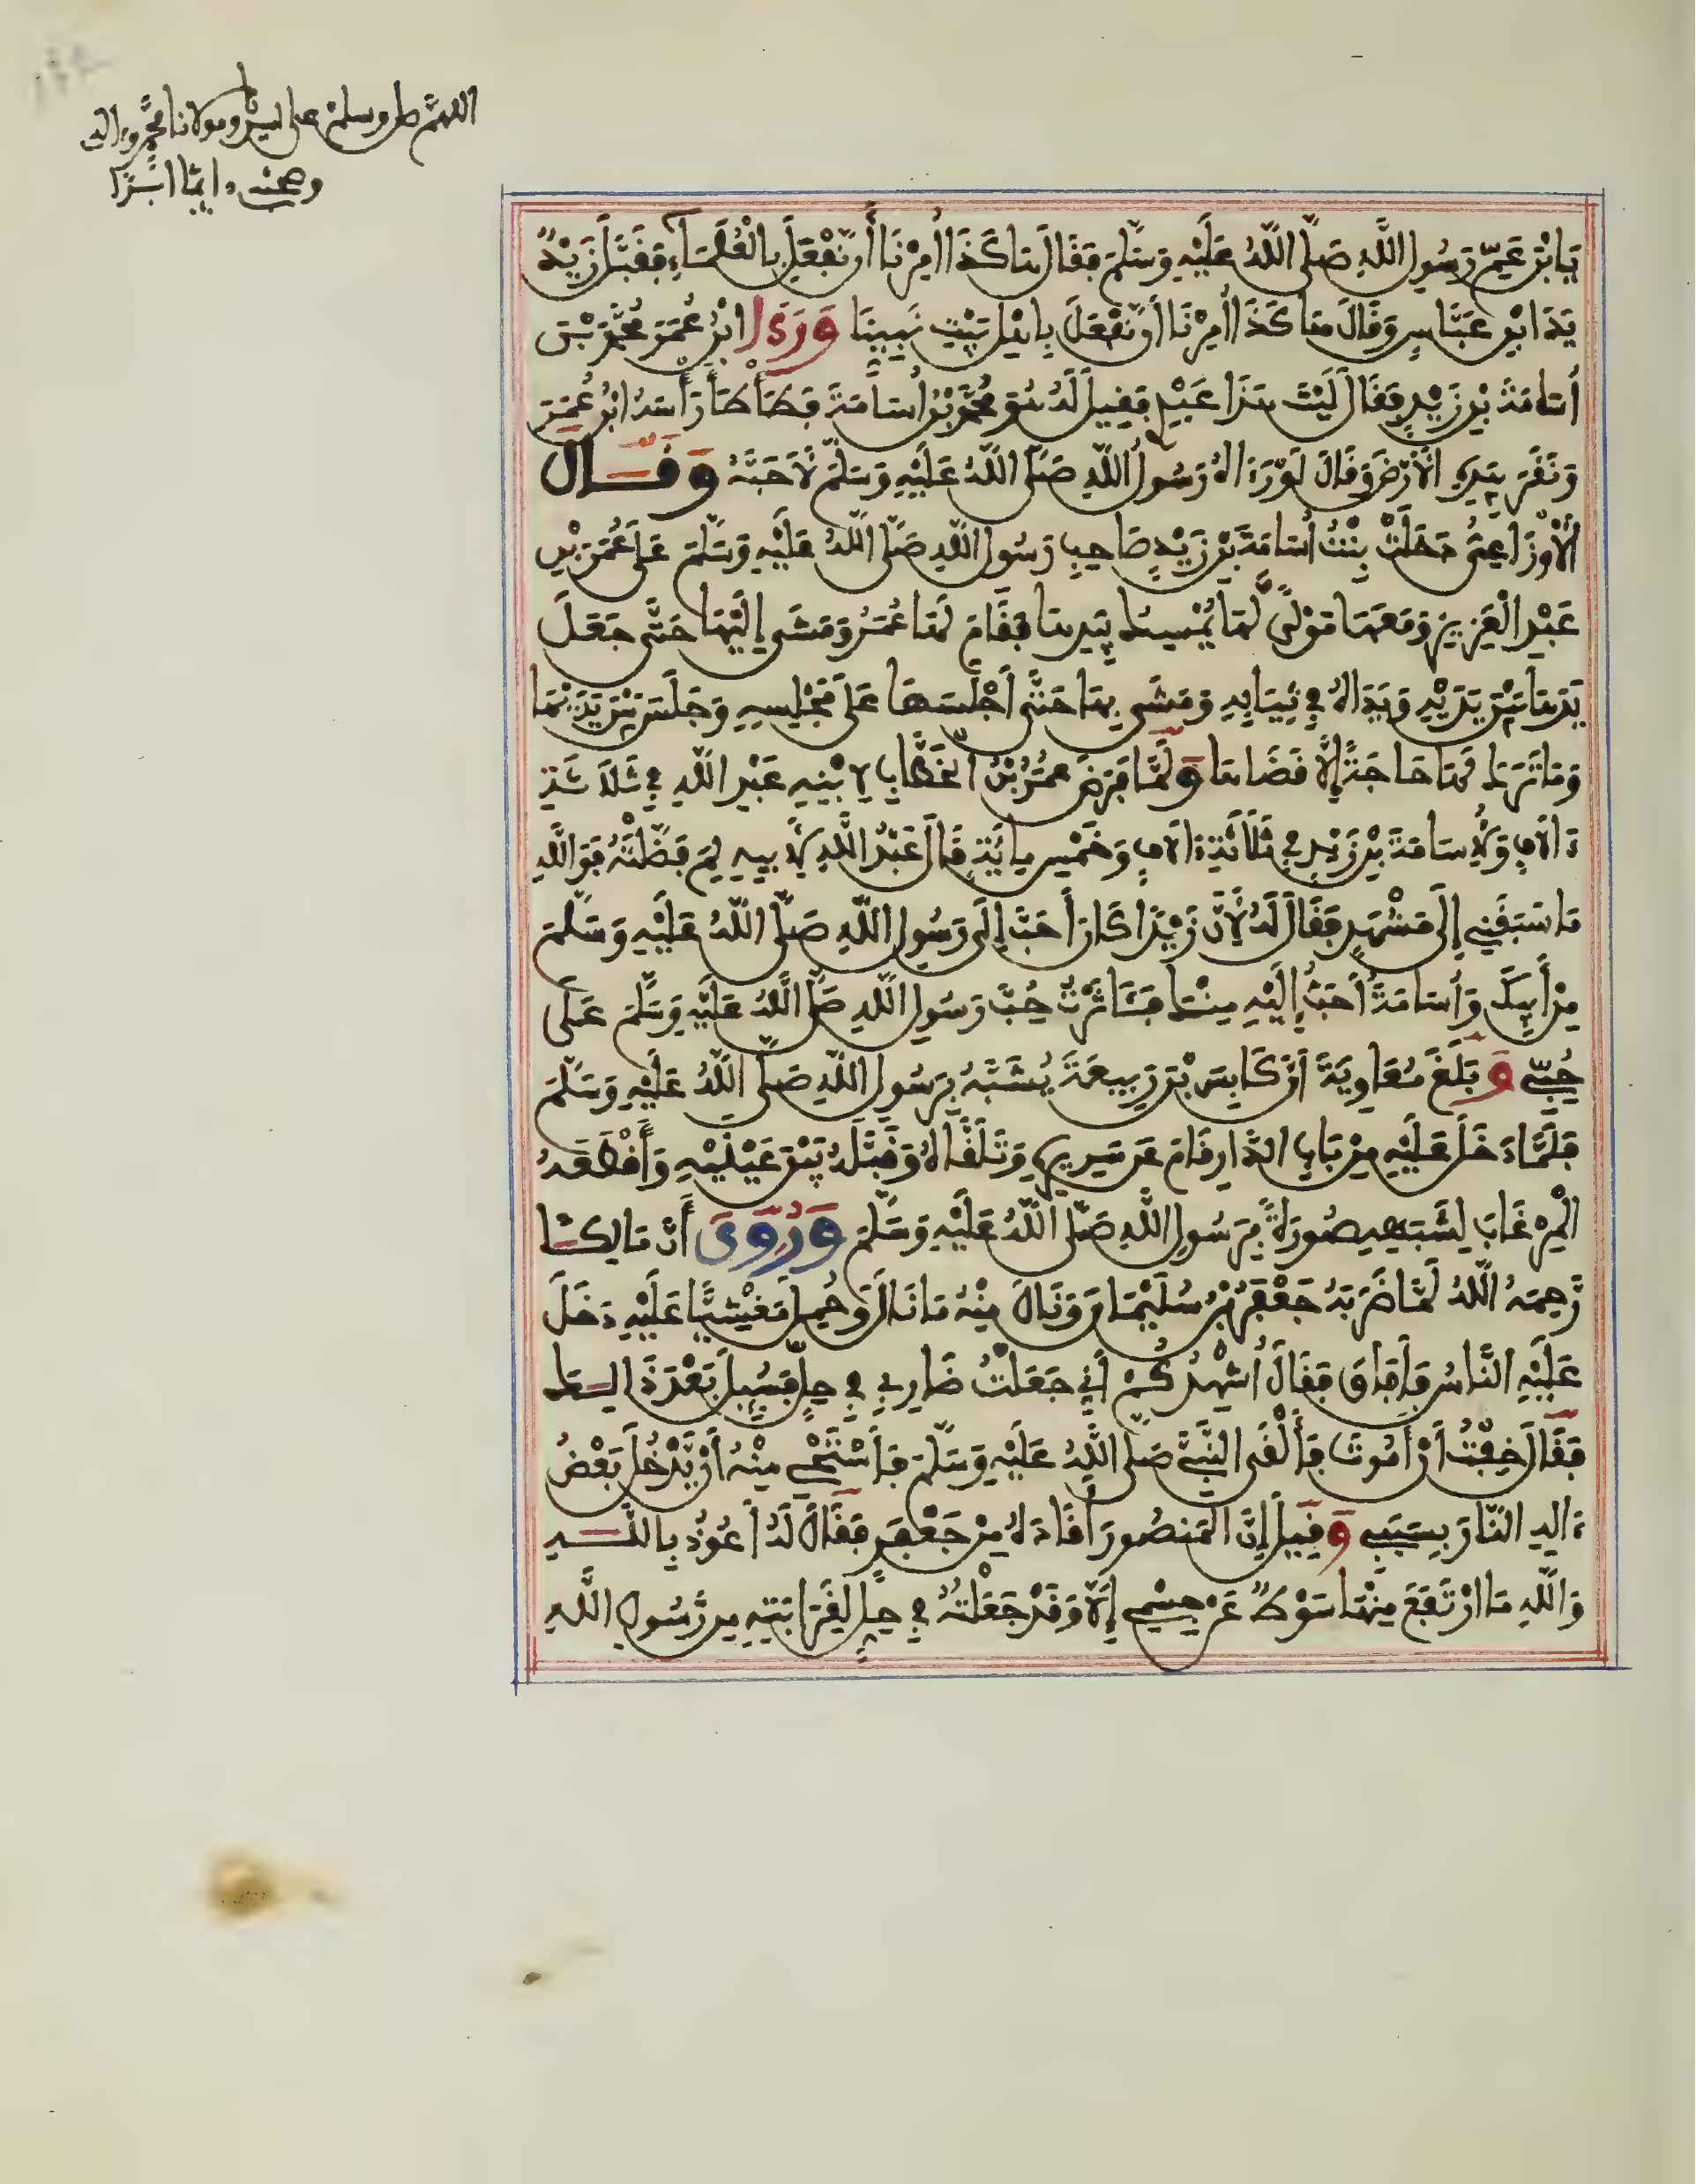 اللهم صل وسلم على سيدنا ومولانا محمد وءاله
وصحبه دايما ابدا
يَا ابْنَ عَمِّ رَسُولِ اللَّهِ صَلَّى اللَّهُ عَلَيْهِ وَسَلَّمَ فَقَالَ هَاكَذَا أُمِرْنَا أَن نَّفْعَلَ بِالْعُلَمَاءِ فَقَبَّلَ زَيْدٌ
يَدَ ابْنِ عَبَّاسٍ وَقَالَ هَاكَذَا أُمِرْنَا أَن نَّفْعَلَ بِأَهْلِ بَيْتِ نَبِيِّنَا وَرَءَا ابْنُ عُمَرَ مُحَمَّدَ بْنَ
أُسَامَةَ بْنِ زَيْدٍ فَقَالَ لَيْتَ هَذَا عَبْدِي فَقِيلَ لَهُ هُوَ مُحَمَّدُ بْنُ أُسَامَةَ فَطَأْطَأَ رَأْسَهُ ابْنُ عُمَرَ
وَنَقَرَ بِيَدِهِ الْأَرْضَ وَقَالَ لَوْ رَءَاهُ رَسُولُ اللَّهِ صَلَّى اللَّهُ عَلَيْهِ وَسَلَّمَ لَأَحَبَّهُ وَقَالَ
الْأَوْزَاعِيُّ دَخَلَتْ بِنْتُ أُسَامَةَ بْنِ زَيْدٍ صَاحِبِ رَسُولِ اللَّهِ صَلَّى اللَّهُ عَلَيْهِ وَسَلَّمَ عَلَى عُمَرَ بْنِ
عَبْدِ الْعَزِيزِ وَمَعَهَا مَوْلًى لَّهَا يُمْسِكُ بِيَدِهَا فَقَامَ لَهَا عُمَرُ وَمَشَى إِلَيْهَا حَتَّى جَعَلَ
يَدَهَا بَيْنَ يَدَيْهِ وَيَدَاهُ فِي ثِيَابِهِ وَمَشَى بِهَا حَتَّى أَجْلَسَهَا عَلَى مَجْلِسِهِ وَجَلَسَ بَيْنَ يَدَيْهَا
وَمَا تَرَكَ لَهَا حَاجَةً إِلَّا قَضَاهَا وَلَمَّا فَرَضَ عُمَرُ بْنُ الْخَطَّابِ لِابْنِهِ عَبْدِ اللَّهِ فِي ثَلَاثَةِ
ءَالَافٍ وَلِأُسَامَةَ بْنِ زَيْدٍ فِي ثَلَاثَةِ ءَالَافٍ وَخَمْسِ مِائَةٍ قَالَ عَبْدُ اللَّهِ لِأَبِيهِ لِمَ فَضَّلْتَهُ فَوَاللَّهِ
مَا سَبَقَنِي إِلَى مَشْهَدٍ فَقَالَ لَهُ لِأَنَّ زَيْدًا كَانَ أَحَبَّ إِلَى رَسُولِ اللَّهِ صَلَّى اللَّهُ عَلَيْهِ وَسَلَّمَ
مِنْ أَبِيكَ وَأُسَامَةُ أَحَبُّ إِلَيْهِ مِنْكَ فَآثَرْتُ حُبَّ رَسُولِ اللَّهِ صَلَّى اللَّهُ عَلَيْهِ وَسَلَّمَ عَلَى
حُبِّي وَبَلَغَ مُعَاوِيَةَ أَنَّ كَابِسَ بْنَ رَبِيعَةَ يُشَبَّهُ بِرَسُولِ اللَّهِ صَلَّى اللَّهُ عَلَيْهِ وَسَلَّمَ
فَلَمَّا دَخَلَ عَلَيْهِ مِنْ بَابِ الدَّارِ قَامَ عَن سَرِيرِهِ وَتَلَقَّاهُ وَقَبَّلَهُ بَيْنَ عَيْنَيْهِ وَأَقْطَعَهُ
الْمِرْغَابَ لِشَبَهِهِ صُورَةَ رَسُولِ اللَّهِ صَلَّى اللَّهُ عَلَيْهِ وَسَلَّمَ وَرُوِيَ أَنَّ مَالِكًا
رَّحِمَهُ اللَّهُ لَمَّا ضَرَبَهُ جَعْفَرُ بْنُ سُلَيْمَانَ وَنَالَ مِنْهُ مَا نَالَ وَحُمِلَ مَغْشِيًّا عَلَيْهِ دَخَلَ
عَلَيْهِ النَّاسُ فَأَفَاقَ فَقَالَ أُشْهِدُكُمْ أَنِّي جَعَلْتُ ضَارِبِي فِي حِلٍّ فَسُئِلَ بَعْدَ ذَالِكَ
فَقَالَ خِفْتُ أَنْ أَمُوتَ فَأَلْقَى النَّبِيَّ صَلَّى اللَّهُ عَلَيْهِ وَسَلَّمَ فَأَسْتَحْيِي مِنْهُ أَنْ يَدْخُلَ بَعْضُ
ءَالِهِ النَّارَ بِسَبَبِي وَقِيلَ إِنَّ الْمَنصُورَ أَقَادَهُ مِنْ جَعْفَرٍ فَقَالَ لَهُ أَعُوذُ بِاللَّهِ
وَاللَّهِ مَا ارْتَفَعَ مِنْهَا سَوْطٌ عَنْ جِسْمِي إِلَّا وَقَدْ جَعَلْتُهُ فِي حِلٍّ لِقَرَابَتِهِ مِن رَّسُولِ اللَّهِ